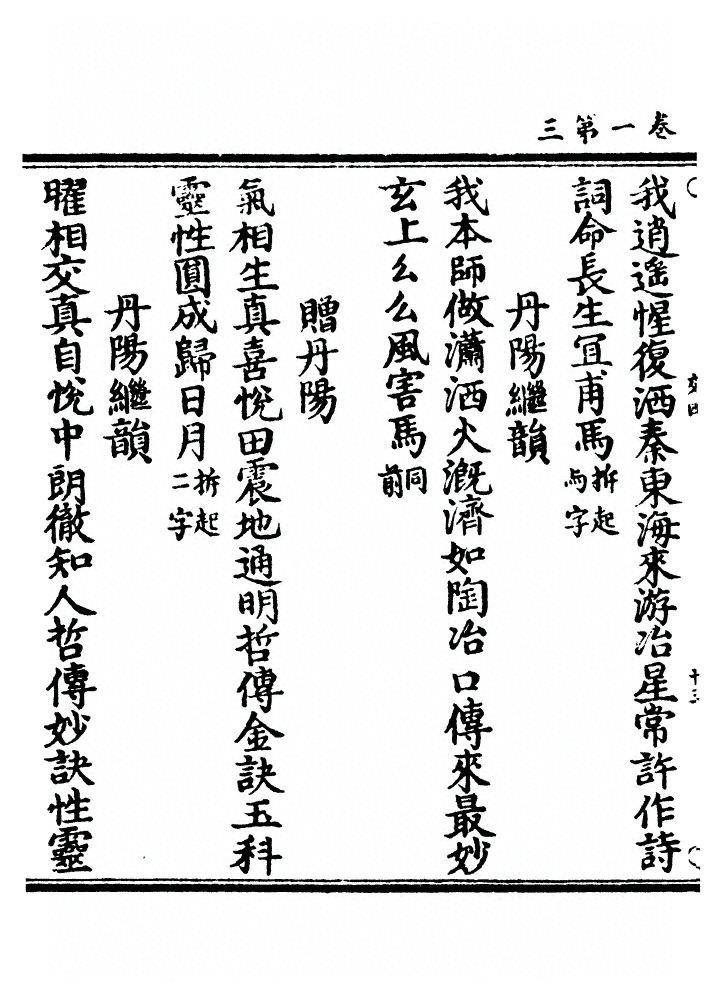 卷一第三
我逍遥惺復洒秦東海來游冶星常許作詩
詞命長生冝甫馬拆起兩字
丹陽繼韻
我本師做瀟洒火溉濟如陶冶口傳來最妙
玄上幺幺風害馬同前
贈丹陽
氣相生真喜悅田震地通明哲傳金訣玉科
靈性圓成歸日月拆起二字
丹陽繼韻
曜相交真自悅中朗徹知人哲傳妙訣性靈